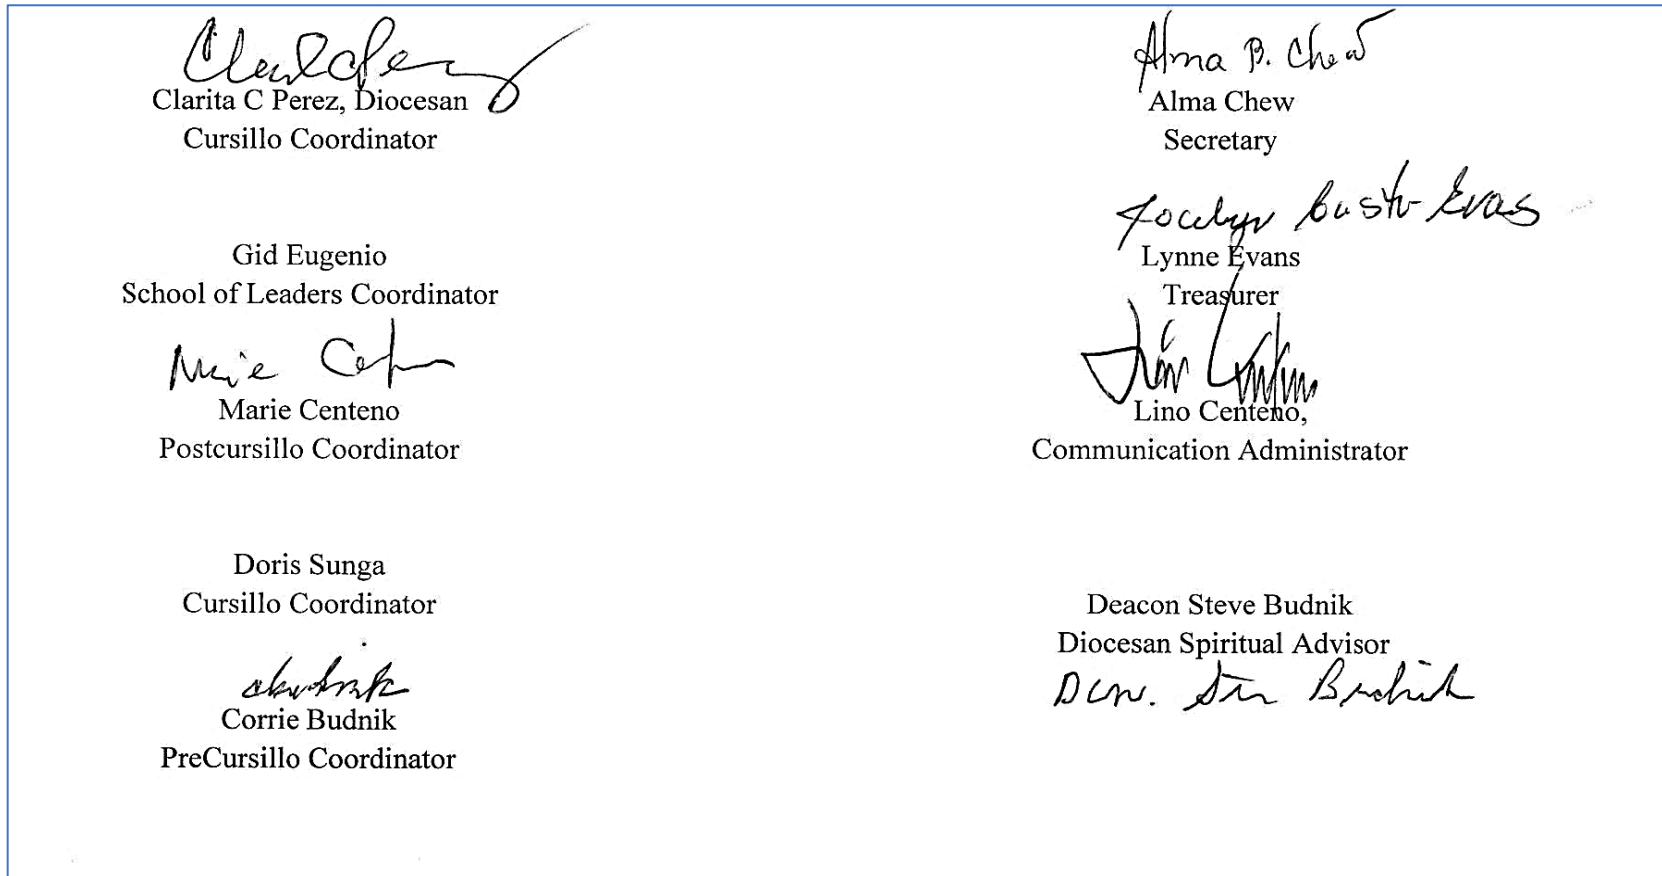 Clarita C Perez, Diocesan
Cursillo Coordinator
Gid Eugenio
School of Leaders Coordinator
Marie Centeno
Postcursillo Coordinator
Doris Sunga
Cursillo Coordinator
Corrie Budnik
PreCursillo Coordinator
Alma B. Chew
Alma Chew
Secretary
Jocelyn Evans
Lynne Evans
Treasurer
Lino Centeno,
Communication Administrator
Deacon Steve Budnik
Diocesan Spiritual Advisor
Budnik